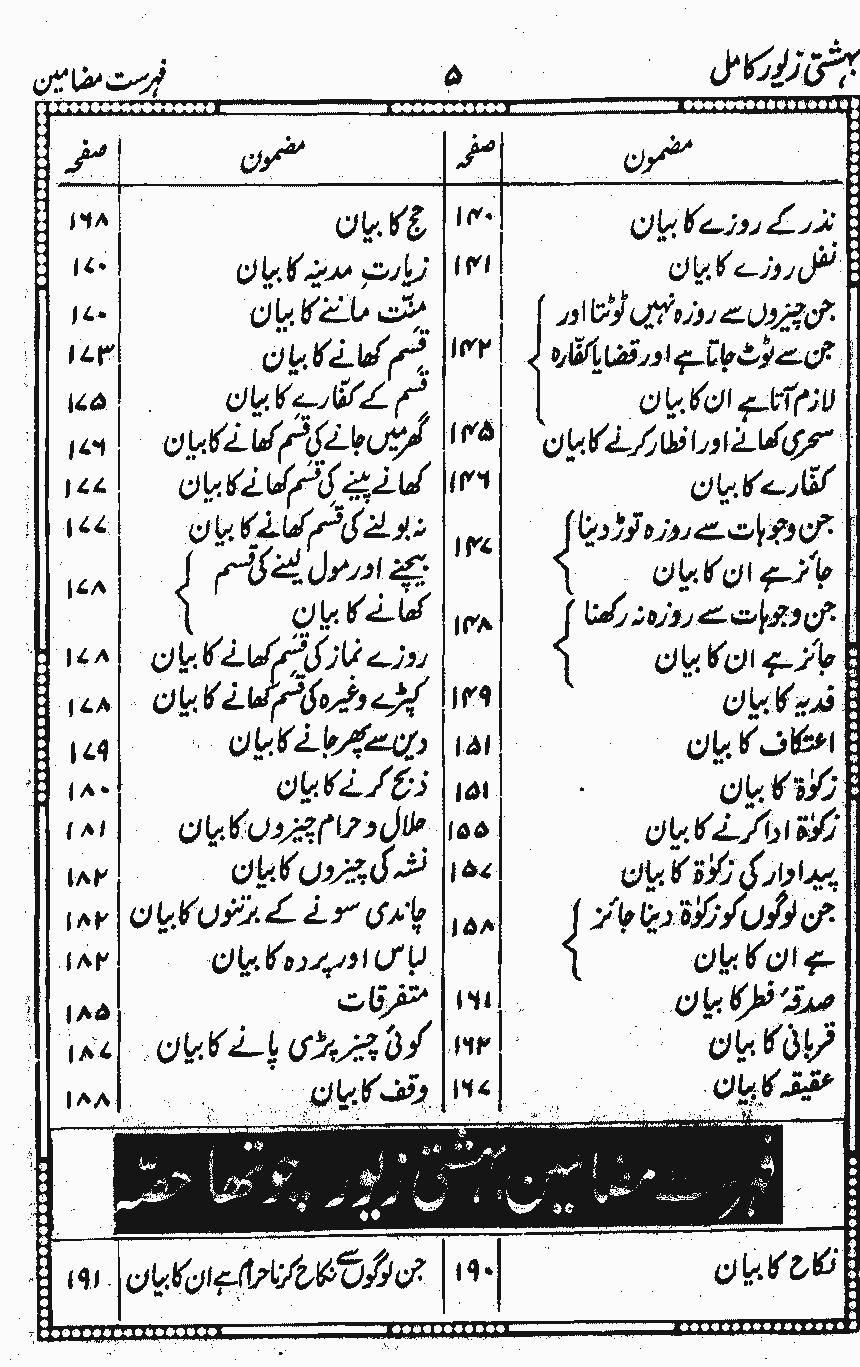 بہشتی زیور کامل
۵
فہرست مضامین
مضمون
صفحہ
نذر کے روزے کا بیان ۱۴۰
نفل روزے کا بیان ۱۴۱
جن چیزوں سے روزہ نہیں ٹوٹتا اور
جن سے ٹوٹ جاتا ہے اور قضا یا کفّارہ ۱۴۲
لازم آتا ہے ان کا بیان
سحری کھانے اور افطار کرنے کا بیان ۱۴۵
کفّارے کا بیان ۱۴۶
جن وجوہات سے روزہ توڑ دینا ۱۴۷
جائز ہے ان کا بیان
جن وجوہات سے روزہ نہ رکھنا ۱۴۸
جائز ہے ان کا بیان
فدیہ کا بیان ۱۴۹
اعتکاف کا بیان ۱۵۱
زکوٰۃ کا بیان ۱۵۱
زکوٰۃ ادا کرنے کا بیان ۱۵۵
پیداوار کی زکوٰۃ کا بیان ۱۵۷
جن لوگوں کو زکوٰۃ دینا جائز ۱۵۸
ہے ان کا بیان
صدقۂ فطر کا بیان ۱۶۱
قربانی کا بیان ۱۶۲
عقیقہ کا بیان ۱۶۷
مضمون
صفحہ
حج کا بیان ۱۶۸
زیارتِ مدینہ کا بیان ۱۷۰
منّت ماننے کا بیان ۱۷۰
قسم کھانے کا بیان ۱۷۳
قسم کے کفّارے کا بیان ۱۷۵
گھر میں جانے کی قسم کھانے کا بیان ۱۷۶
کھانے پینے کی قسم کھانے کا بیان ۱۷۷
نہ بولنے کی قسم کھانے کا بیان ۱۷۷
بیچنے اور مول لینے کی قسم ۱۷۸
کھانے کا بیان
روزے نماز کی قسم کھانے کا بیان ۱۷۸
کپڑے وغیرہ کی قسم کھانے کا بیان ۱۷۸
دین سے پھر جانے کا بیان ۱۷۹
ذبح کرنے کا بیان ۱۸۰
حلال و حرام چیزوں کا بیان ۱۸۱
نشہ کی چیزوں کا بیان ۱۸۲
چاندی سونے کے برتنوں کا بیان ۱۸۲
لباس اور پردہ کا بیان ۱۸۲
متفرقات ۱۸۵
کوئی چیز پڑی پانے کا بیان ۱۸۷
وقف کا بیان ۱۸۸
فہرست مضامین بہشتی زیور چوتھا حصّہ
نکاح کا بیان ۱۹۰
جن لوگوں سے نکاح کرنا حرام ہے ان کا بیان ۱۹۱